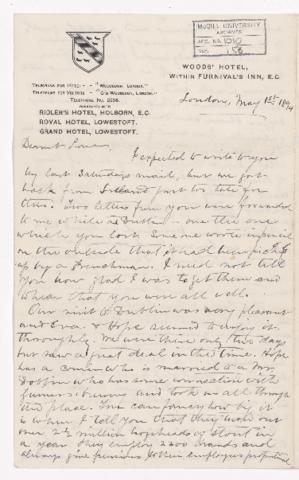 McGILL UNIVERSITY
ARCHIVES
ACC. NO. 1010
REF. 153
WOODS' HOTEL,
WITHIN FURNIVAL'S INN, E.C.
TELEPHONE NO.
RIDLER'S HOTEL, HOLBORN, E.C.
ROYAL HOTEL, LOWESTOFT.
GRAND HOTEL, LOWESTOFT.
London, May 1st 1894
Dearest
I expected to write to you
by last Saturday's mail, but we got
back from Ireland just too late for
this. Two letters from you were forwarded
to me while in Dublin - one the one
which you lost. Some one wrote
on the outside that it had been picked
up by a Frenchman. I need not tell
you how glad I was to get them and
to hear that you were all well.
Our visit to Dublin was very pleasant
and Eva & Hope seemed to enjoy it
thoroughly. We were there only two days
but saw a great deal in the time. Hope
has a cousin who is married to a Mr.
who has some connection with
and took us all through
the place. You can fancy how big it
is when I tell you that they turn out
over 2½ million hogsheads of stout in
a year. They employ 2200 hands and
always give pensions to their employees